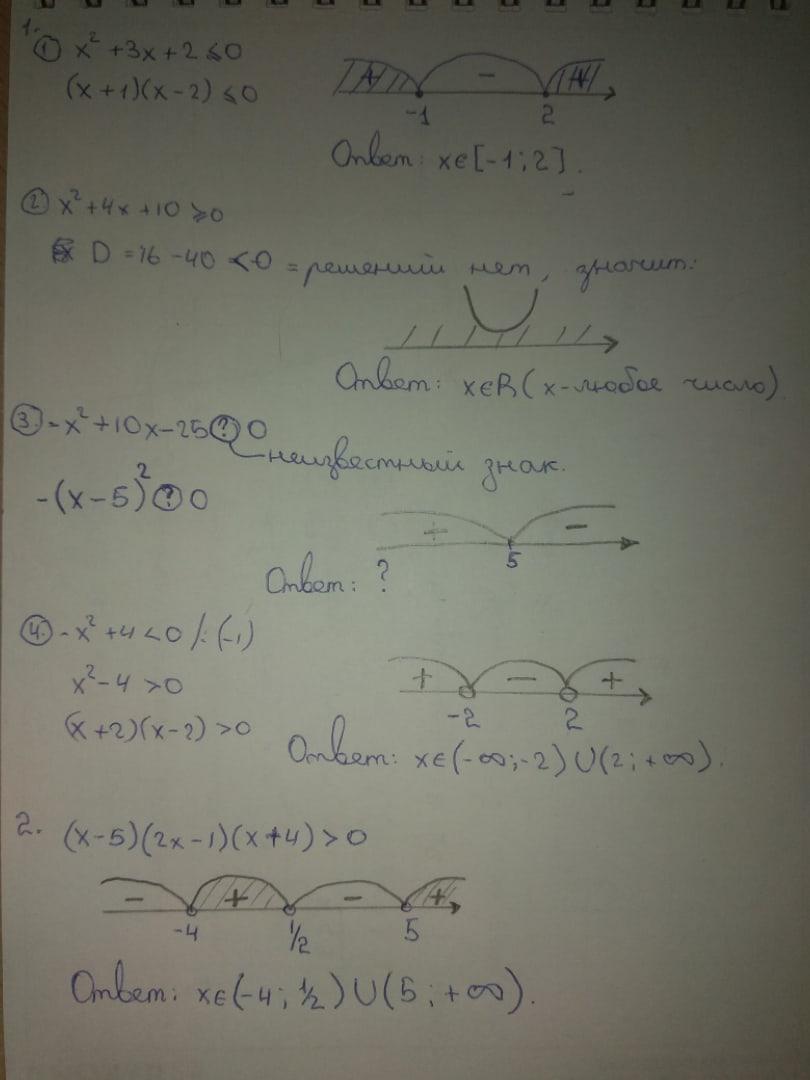 1.
① x² + 3x + 2 ≤ 0
(x + 1)(x - 2) ≤ 0
-
-1 2
Ответ: x∈[-1; 2].
② x² + 4x + 10 ≥ 0
D = 16 - 40 < 0 = решений нет, значит:
Ответ: x∈R (x - любое число)
③ -x² + 10x - 25 ? 0
неизвестный знак.
-(x - 5)² ? 0
+ -
5
Ответ: ?
④ -x² + 4 < 0 /: (-1)
x² - 4 > 0
+ - +
(x + 2)(x - 2) > 0
-2 2
Ответ: x∈(-∞; -2) ∪ (2; +∞).
2. (x - 5)(2x - 1)(x + 4) > 0
- + - +
-4 1/2 5
Ответ: x∈(-4; 1/2) ∪ (5; +∞).